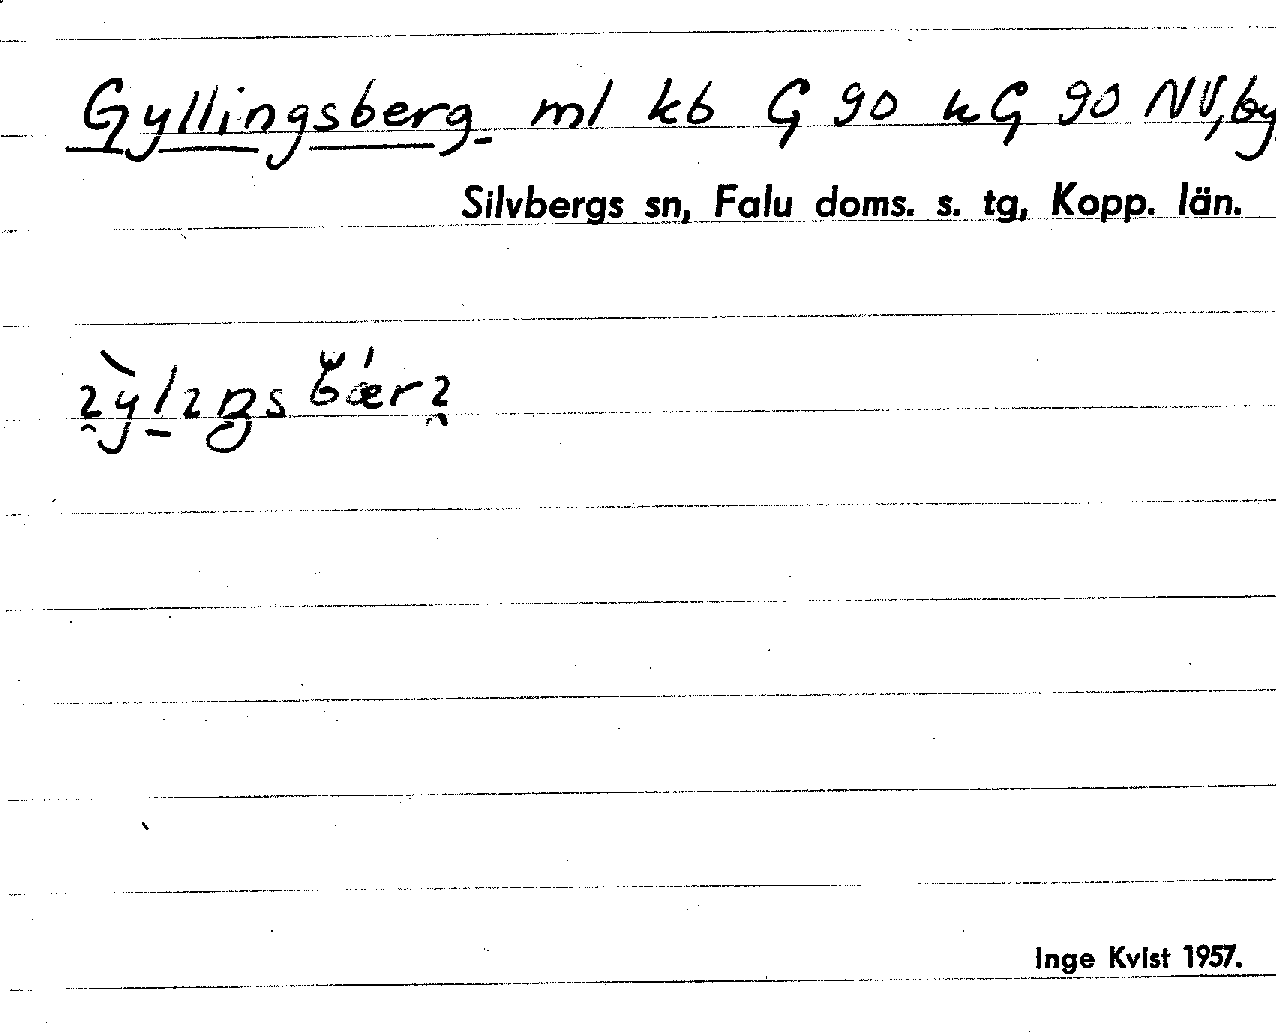 Gyllingsberg ml kb G 90 kG 90 NV, by
Silvbergs sn, Falu doms. s. tg, Kopp. län.
Inge Kvist 1957.